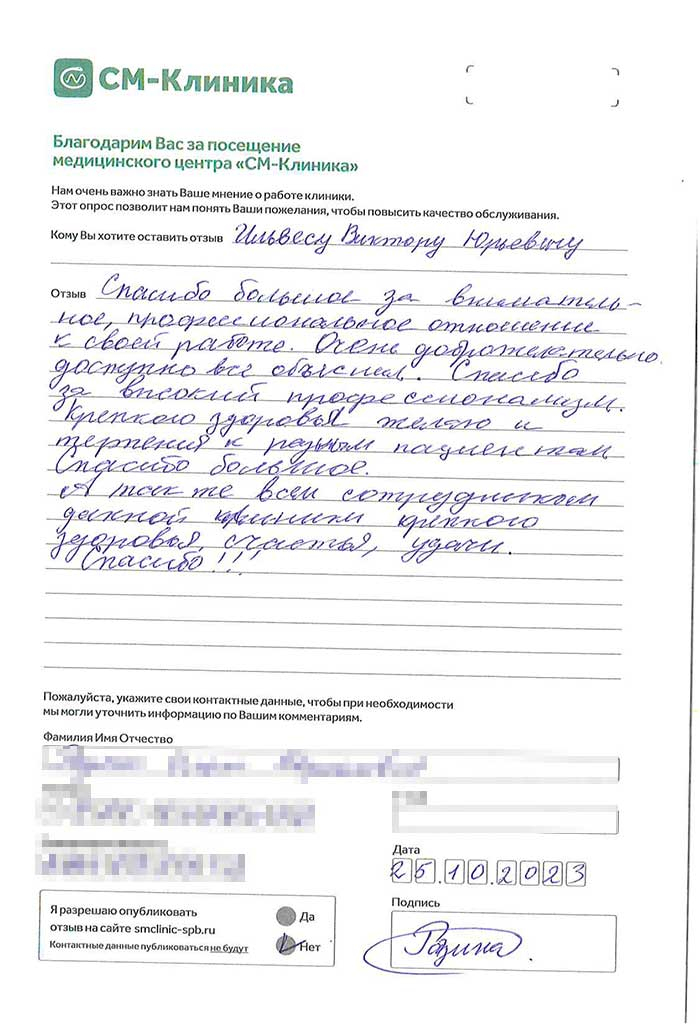 СМ-Клиника
Благодарим Вас за посещение
медицинского центра «СМ-Клиника»
Нам очень важно знать Ваше мнение о работе клиники.
Этот опрос позволит нам понять Ваши пожелания, чтобы повысить качество обслуживания.
Кому Вы хотите оставить отзыв Ильвесу Виктору Юрьевичу
Отзыв Спасибо большое за внематель-
ное, профессиональное отношение
к своей работе. Очень доброжелательно.
доступно все объяснил. Спасибо
за высокий профессионализм.
Крепкого здоровья желаю и
терпения к разным пациентам
Спасибо большое.
А так же всем сотрудникам
данной клиники крепкого
здоровья, счастья, удачи.
Спасибо!!!
Пожалуйста, укажите свои контактные данные, чтобы при необходимости
мы могли уточнить информацию по Вашим комментариям.
Фамилия Имя Отчество
Дата
25.10.2023
Подпись
Я разрешаю опубликовать
отзыв на сайте smclinic-spb.ru
Контактные данные публиковаться не будут
Да
Нет